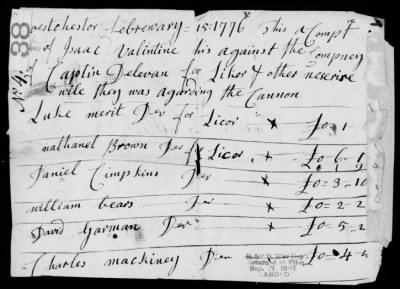 westchester Febrewary = 15 - 1776 this a Compt
of Isaac Valintine his against the Compney
of Captin Delevan for Likor & other
wile they was agarding the Cannon
Luke merit Der for Licor × £0-1
nathanel Brown Der for Licor × £0-6-9
Daniel Cimpkins Der × £0=3-10
william bears Der × £0=2-2
David Garman Der × £0=5-2
Charles mackiney Der × £0-4-
No. 4
88
R. & P. War Dep't
Returned to Files,
Sep. 17 1887
CARDED